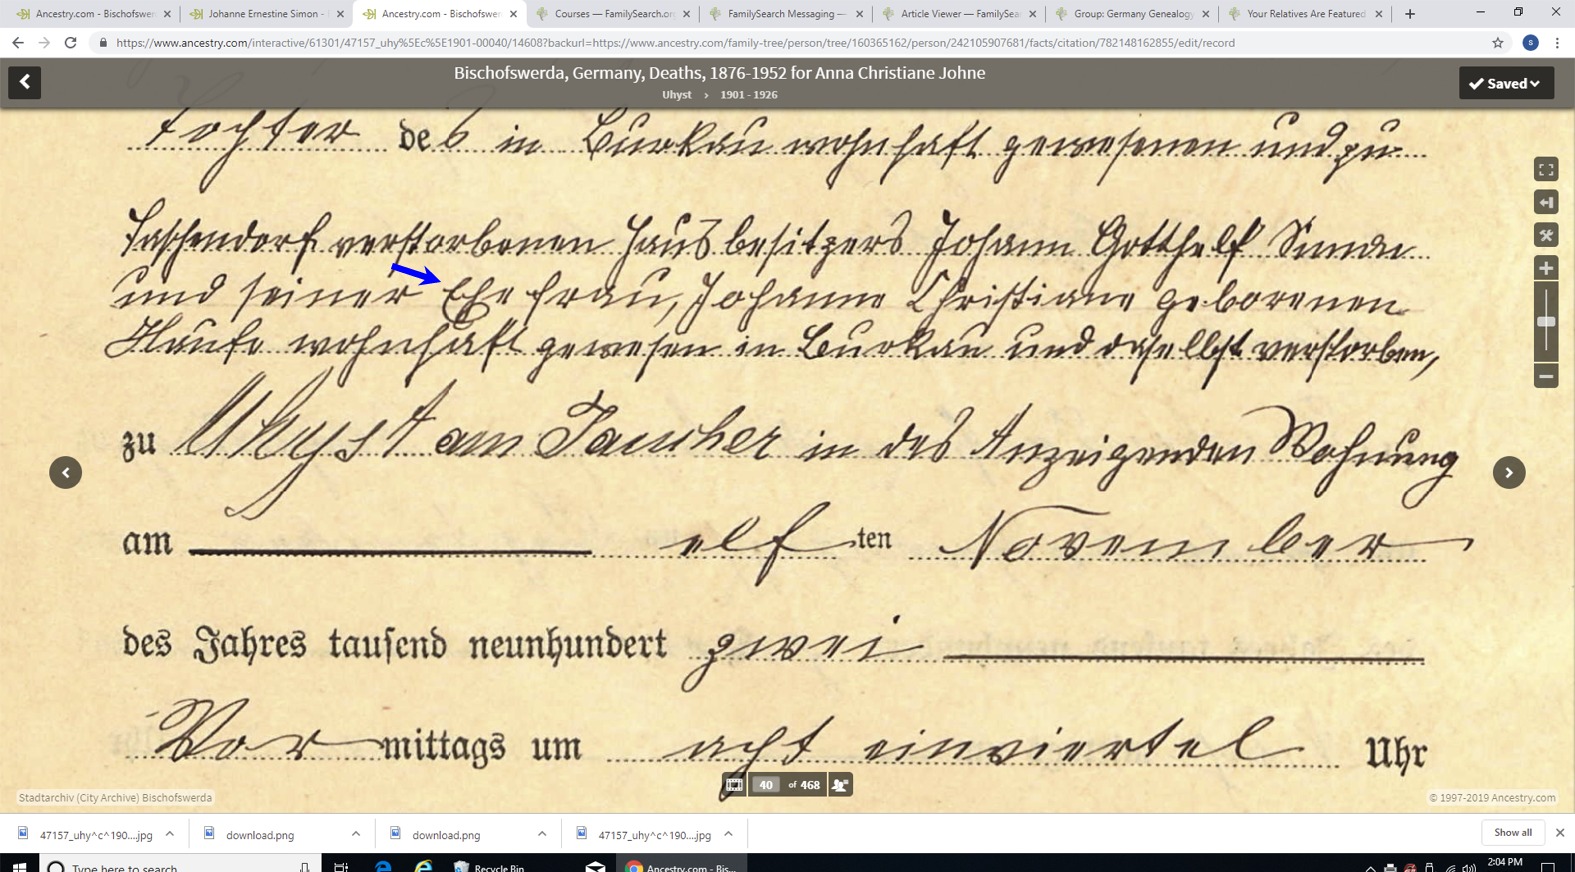 Ancestry.com - Bischofswer
Johanne Ernestine Simon -
Ancestry.com - Bischofswer
Courses — FamilySearch.or
FamilySearch Messaging —
Article Viewer — FamilySea
Group: Germany Genealogy
Your Relatives Are Featured
https://www.ancestry.com/interactive/61301/47157_uhy%5Ec%5E1901-00040/14608?backurl=https://www.ancestry.com/family-tree/person/tree/160365162/person/242105907681/facts/citation/782148162855/edit/record
S
Bischofswerda, Germany, Deaths, 1876-1952 for Anna Christiane Johne
Uhyst › 1901 - 1926
Saved
Tochter des in Burkau wohnhaft gewesenen und zu
Taschendorf verstorbenen Hausbesitzers Johann Gotthelf Simon
und seiner Ehefrau, Johanne Christiane geborenen
Haufe wohnhaft gewesen in Burkau und daselbst verstorben,
zu Uhyst am Taucher in des Anzeigenden Wohnung
am elf ten November
des Jahres tausend neunhundert zwei
Vor mittags um acht einviertel Uhr
40 of 468
Stadtarchiv (City Archive) Bischofswerda
© 1997-2019 Ancestry.com
47157_uhy^c^190....jpg
download.png
download.png
47157_uhy^c^190....jpg
Show all
Type here to search
Recycle Bin
Ancestry.com - Bis...
2:04 PM